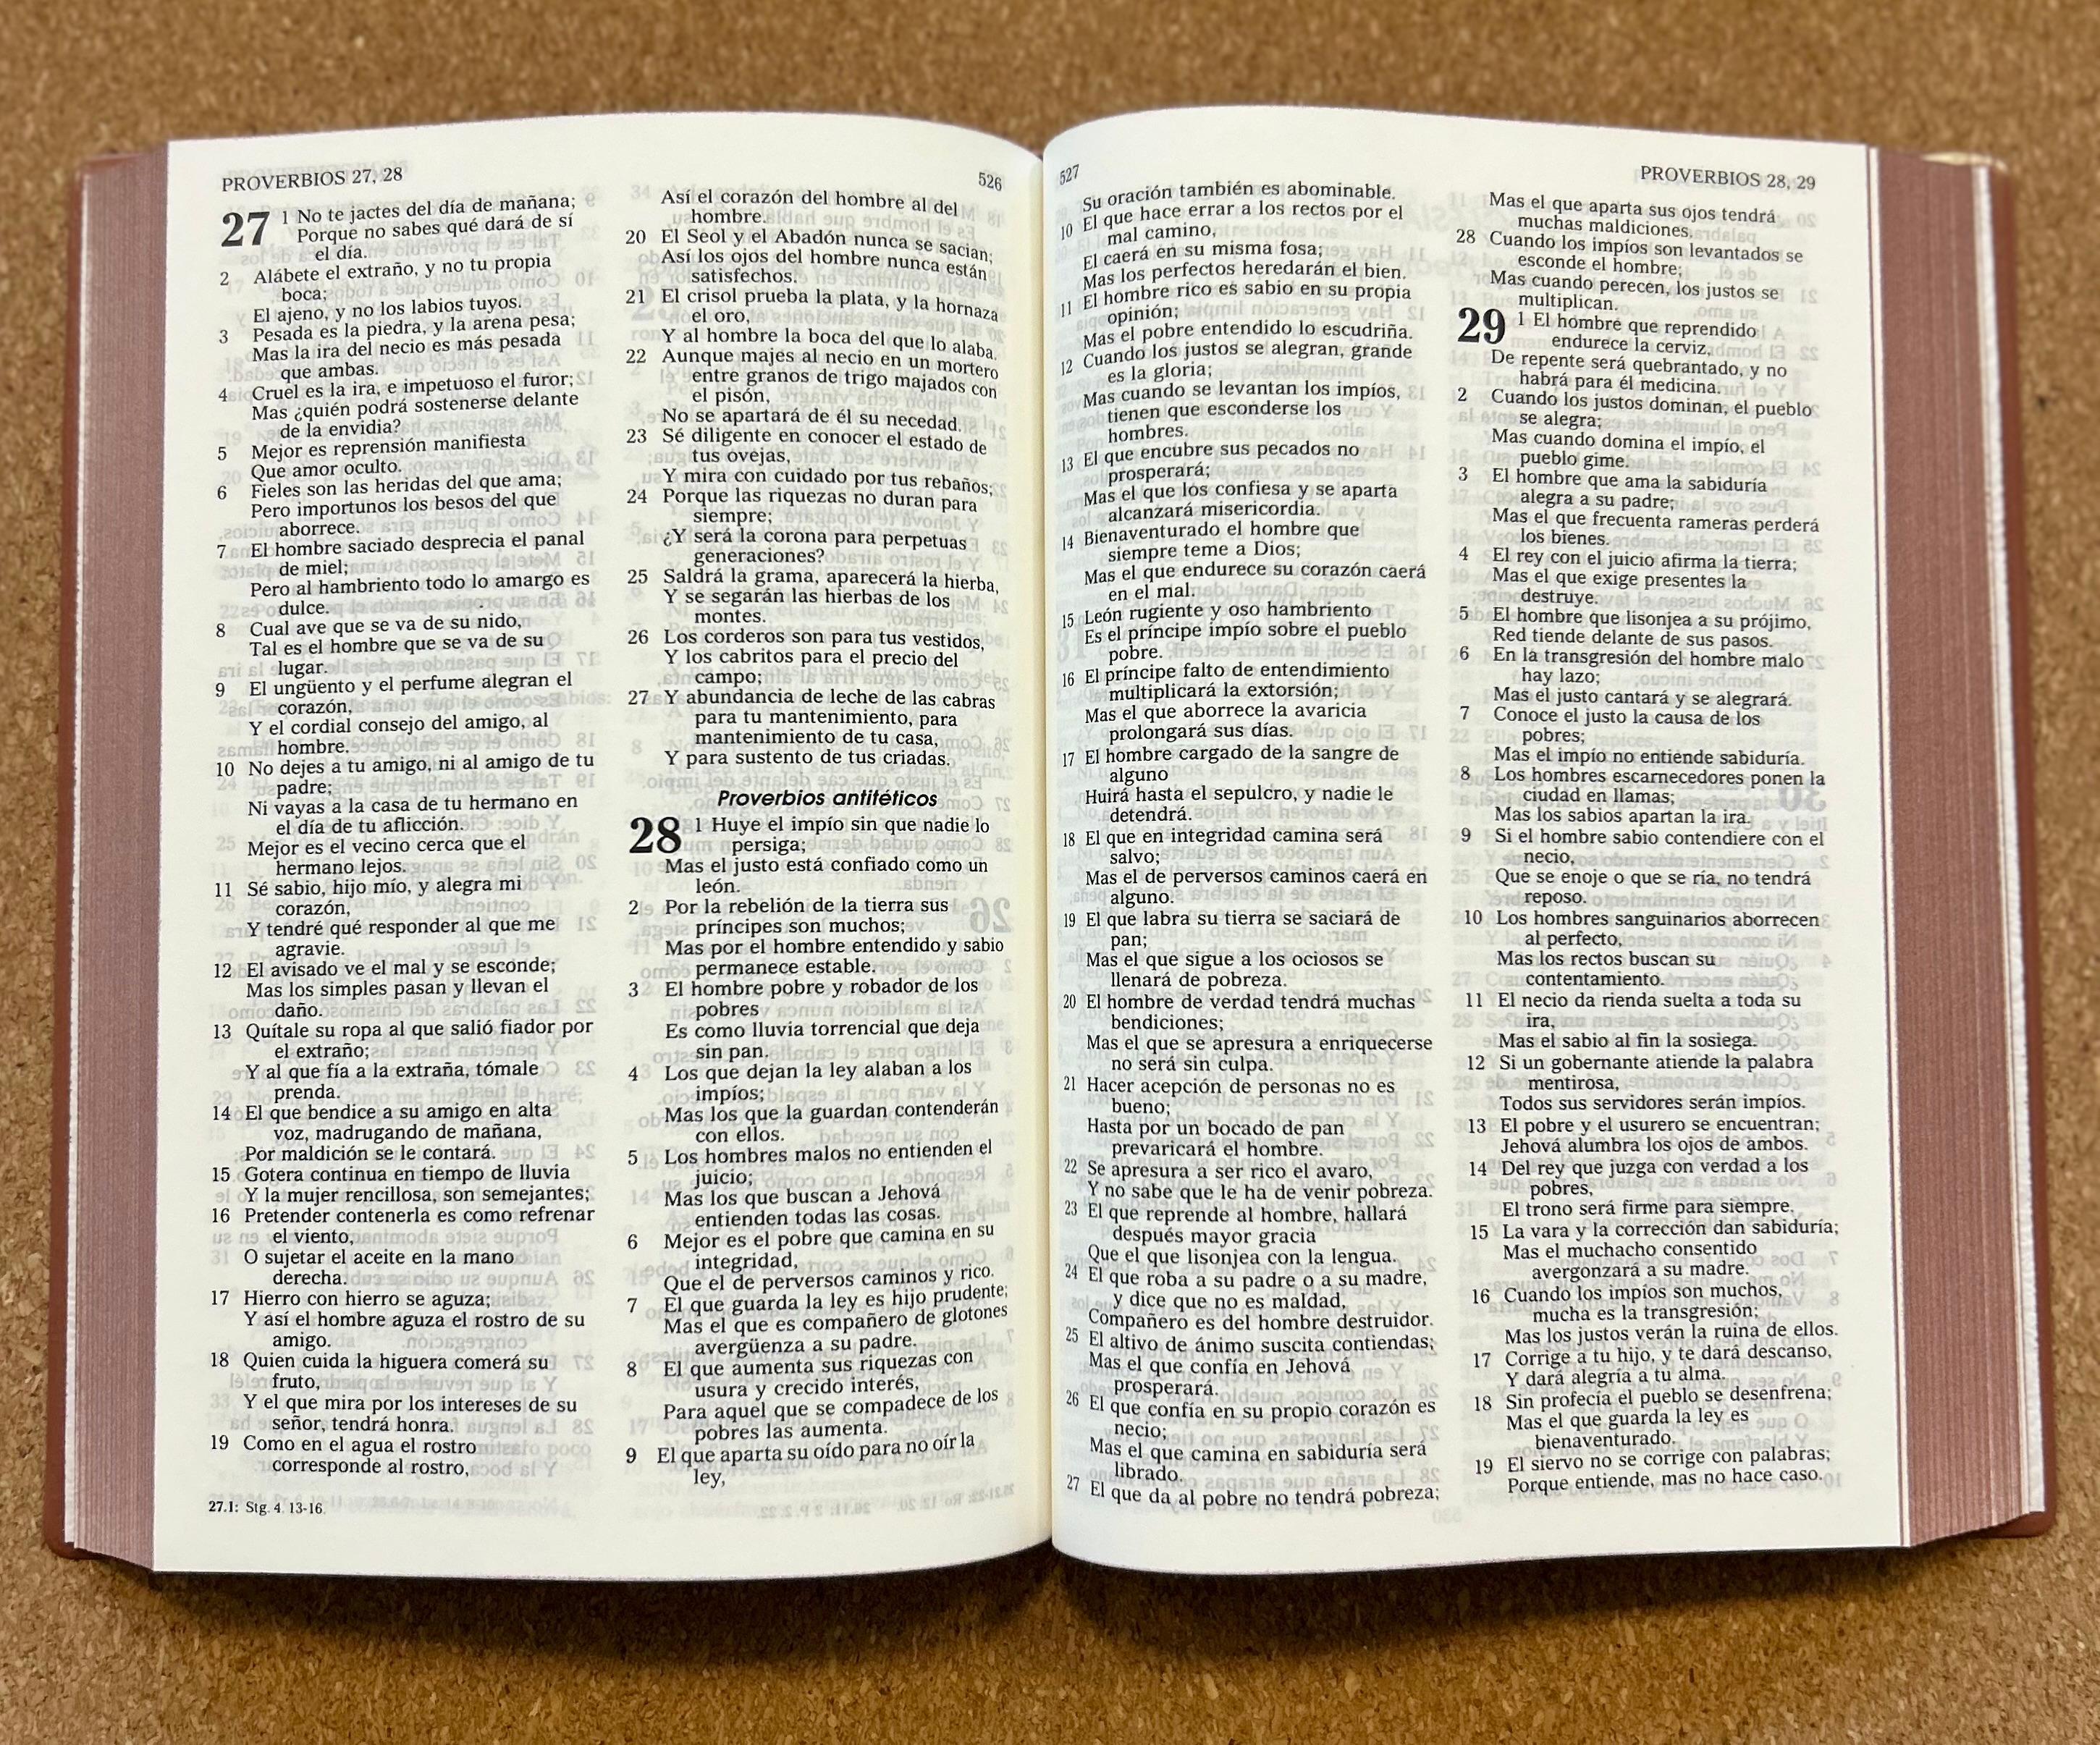 PROVERBIOS 27, 28
526
27 1 No te jactes del día de mañana;
Porque no sabes qué dará de sí
el día.
2 Alábete el extraño, y no tu propia
boca;
El ajeno, y no los labios tuyos.
3 Pesada es la piedra, y la arena pesa;
Mas la ira del necio es más pesada
que ambas.
4 Cruel es la ira, e impetuoso el furor;
Mas ¿quién podrá sostenerse delante
de la envidia?
5 Mejor es reprensión manifiesta
Que amor oculto.
6 Fieles son las heridas del que ama;
Pero importunos los besos del que
aborrece.
7 El hombre saciado desprecia el panal
de miel;
Pero al hambriento todo lo amargo es
dulce.
8 Cual ave que se va de su nido,
Tal es el hombre que se va de su
lugar.
9 El ungüento y el perfume alegran el
corazón,
Y el cordial consejo del amigo, al
hombre.
10 No dejes a tu amigo, ni al amigo de tu
padre;
Ni vayas a la casa de tu hermano en
el día de tu aflicción.
Mejor es el vecino cerca que el
hermano lejos.
11 Sé sabio, hijo mío, y alegra mi
corazón,
Y tendré qué responder al que me
agravie.
12 El avisado ve el mal y se esconde;
Mas los simples pasan y llevan el
daño.
13 Quítale su ropa al que salió fiador por
el extraño;
Y al que fía a la extraña, tómale
prenda.
14 El que bendice a su amigo en alta
voz, madrugando de mañana,
Por maldición se le contará.
15 Gotera continua en tiempo de lluvia
Y la mujer rencillosa, son semejantes;
16 Pretender contenerla es como refrenar
el viento,
O sujetar el aceite en la mano
derecha.
17 Hierro con hierro se aguza;
Y así el hombre aguza el rostro de su
amigo.
18 Quien cuida la higuera comerá su
fruto,
Y el que mira por los intereses de su
señor, tendrá honra.
19 Como en el agua el rostro
corresponde al rostro,
27.1: Stg. 4. 13-16.
Así el corazón del hombre al del
hombre.
20 El Seol y el Abadón nunca se sacian;
Así los ojos del hombre nunca están
satisfechos.
21 El crisol prueba la plata, y la hornaza
el oro,
Y al hombre la boca del que lo alaba.
22 Aunque majes al necio en un mortero
entre granos de trigo majados con
el pisón,
No se apartará de él su necedad.
23 Sé diligente en conocer el estado de
tus ovejas,
Y mira con cuidado por tus rebaños;
24 Porque las riquezas no duran para
siempre;
¿Y será la corona para perpetuas
generaciones?
25 Saldrá la grama, aparecerá la hierba,
Y se segarán las hierbas de los
montes.
26 Los corderos son para tus vestidos,
Y los cabritos para el precio del
campo;
27 Y abundancia de leche de las cabras
para tu mantenimiento, para
mantenimiento de tu casa,
Y para sustento de tus criadas.
Proverbios antitéticos
28 1 Huye el impío sin que nadie lo
persiga;
Mas el justo está confiado como un
león.
2 Por la rebelión de la tierra sus
príncipes son muchos;
Mas por el hombre entendido y sabio
permanece estable.
3 El hombre pobre y robador de los
pobres
Es como lluvia torrencial que deja
sin pan.
4 Los que dejan la ley alaban a los
impíos;
Mas los que la guardan contenderán
con ellos.
5 Los hombres malos no entienden el
juicio;
Mas los que buscan a Jehová
entienden todas las cosas.
6 Mejor es el pobre que camina en su
integridad,
Que el de perversos caminos y rico.
7 El que guarda la ley es hijo prudente;
Mas el que es compañero de glotones
avergüenza a su padre.
8 El que aumenta sus riquezas con
usura y crecido interés,
Para aquel que se compadece de los
pobres las aumenta.
9 El que aparta su oído para no oír la
ley,
527
PROVERBIOS 28, 29
Su oración también es abominable.
10 El que hace errar a los rectos por el
mal camino,
El caerá en su misma fosa;
Mas los perfectos heredarán el bien.
11 El hombre rico es sabio en su propia
opinión;
Mas el pobre entendido lo escudriña.
12 Cuando los justos se alegran, grande
es la gloria;
Mas cuando se levantan los impíos,
tienen que esconderse los
hombres.
13 El que encubre sus pecados no
prosperará;
Mas el que los confiesa y se aparta
alcanzará misericordia.
14 Bienaventurado el hombre que
siempre teme a Dios;
Mas el que endurece su corazón caerá
en el mal.
15 León rugiente y oso hambriento
Es el príncipe impío sobre el pueblo
pobre.
16 El príncipe falto de entendimiento
multiplicará la extorsión;
Mas el que aborrece la avaricia
prolongará sus días.
17 El hombre cargado de la sangre de
alguno
Huirá hasta el sepulcro, y nadie le
detendrá.
18 El que en integridad camina será
salvo;
Mas el de perversos caminos caerá en
alguno.
19 El que labra su tierra se saciará de
pan;
Mas el que sigue a los ociosos se
llenará de pobreza.
20 El hombre de verdad tendrá muchas
bendiciones;
Mas el que se apresura a enriquecerse
no será sin culpa.
21 Hacer acepción de personas no es
bueno;
Hasta por un bocado de pan
prevaricará el hombre.
22 Se apresura a ser rico el avaro,
Y no sabe que le ha de venir pobreza.
23 El que reprende al hombre, hallará
después mayor gracia
Que el que lisonjea con la lengua.
24 El que roba a su padre o a su madre,
y dice que no es maldad,
Compañero es del hombre destruidor.
25 El altivo de ánimo suscita contiendas;
Mas el que confía en Jehová
prosperará.
26 El que confía en su propio corazón es
necio;
Mas el que camina en sabiduría será
librado.
27 El que da al pobre no tendrá pobreza;
Mas el que aparta sus ojos tendrá
muchas maldiciones.
28 Cuando los impíos son levantados se
esconde el hombre;
Mas cuando perecen, los justos se
multiplican.
29 1 El hombre que reprendido
endurece la cerviz,
De repente será quebrantado, y no
habrá para él medicina.
2 Cuando los justos dominan, el pueblo
se alegra;
Mas cuando domina el impío, el
pueblo gime.
3 El hombre que ama la sabiduría
alegra a su padre;
Mas el que frecuenta rameras perderá
los bienes.
4 El rey con el juicio afirma la tierra;
Mas el que exige presentes la
destruye.
5 El hombre que lisonjea a su prójimo,
Red tiende delante de sus pasos.
6 En la transgresión del hombre malo
hay lazo;
Mas el justo cantará y se alegrará.
7 Conoce el justo la causa de los
pobres;
Mas el impío no entiende sabiduría.
8 Los hombres escarnecedores ponen la
ciudad en llamas;
Mas los sabios apartan la ira.
9 Si el hombre sabio contendiere con el
necio,
Que se enoje o que se ría, no tendrá
reposo.
10 Los hombres sanguinarios aborrecen
al perfecto,
Mas los rectos buscan su
contentamiento.
11 El necio da rienda suelta a toda su
ira,
Mas el sabio al fin la sosiega.
12 Si un gobernante atiende la palabra
mentirosa,
Todos sus servidores serán impíos.
13 El pobre y el usurero se encuentran;
Jehová alumbra los ojos de ambos.
14 Del rey que juzga con verdad a los
pobres,
El trono será firme para siempre.
15 La vara y la corrección dan sabiduría;
Mas el muchacho consentido
avergonzará a su madre.
16 Cuando los impíos son muchos,
mucha es la transgresión;
Mas los justos verán la ruina de ellos.
17 Corrige a tu hijo, y te dará descanso,
Y dará alegría a tu alma.
18 Sin profecía el pueblo se desenfrena;
Mas el que guarda la ley es
bienaventurado.
19 El siervo no se corrige con palabras;
Porque entiende, mas no hace caso.